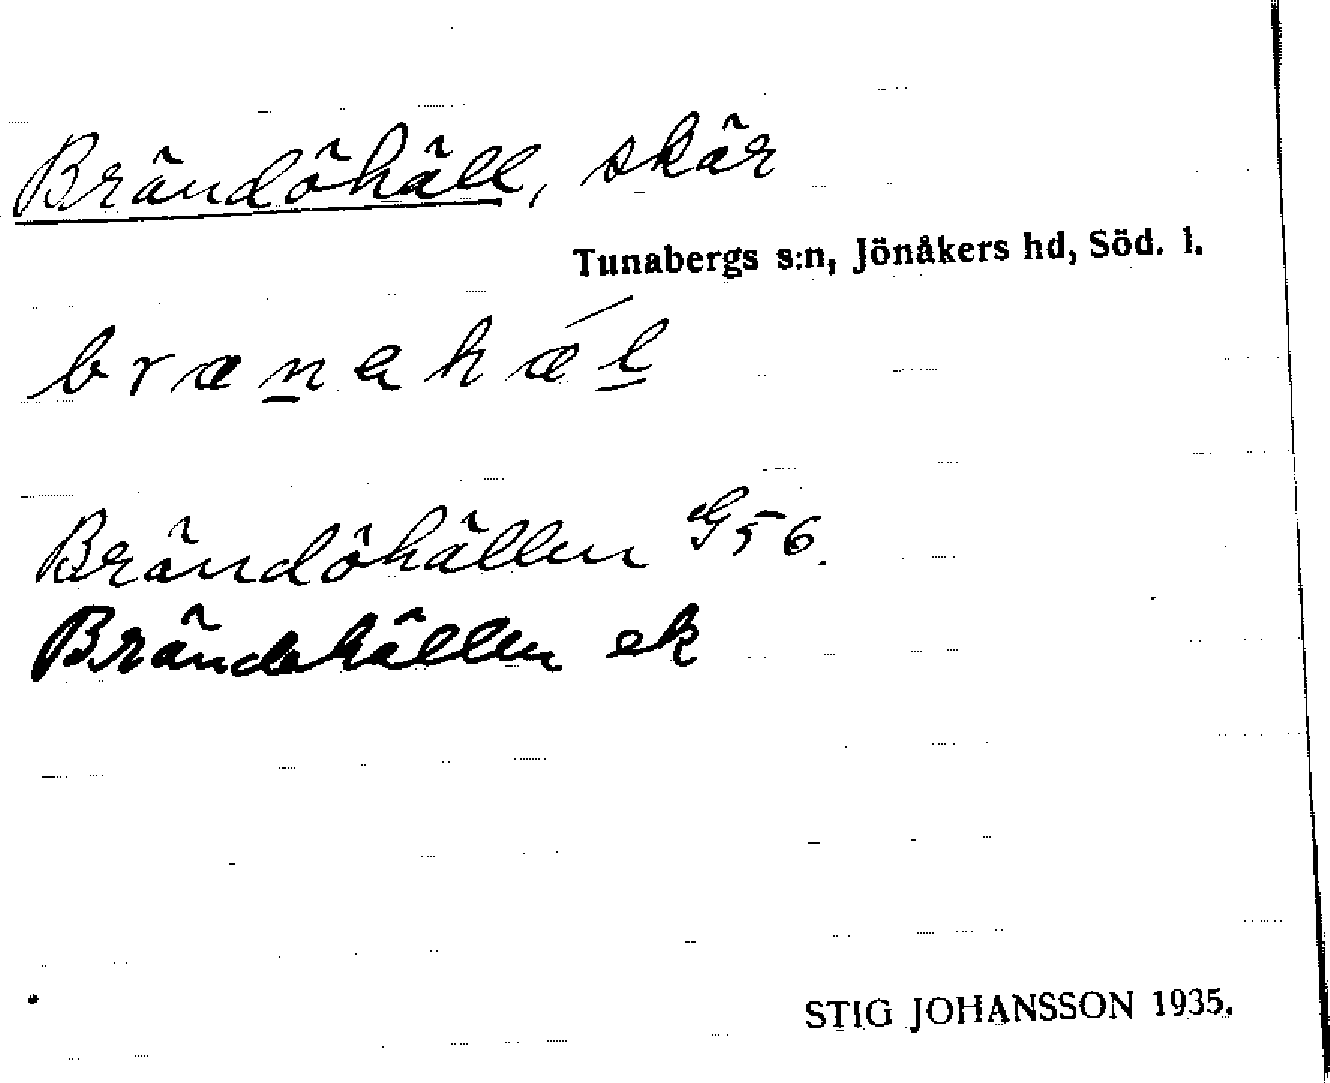 Brändöhäll, skär
Tunabergs s:n, Jönåkers hd, Söd. l.
brænahǽl
Brändöhällen G56.
Brändehällen ek
STIG JOHANSSON 1935.